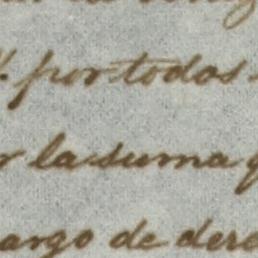 por todos
la suma
argo de dere